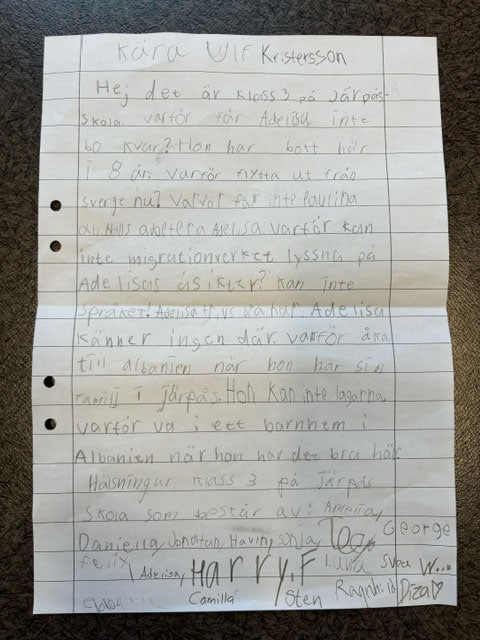 Kära Ulf Kristersson
Hej det är klass 3 på Järpås-
skola. varför får Adelisa inte
bo kvar? Hon har bott här
i 8 år. varför flytta ut från
sverge nu? varför får inte
adoptera Adelisa. varför kan
inte migrationverket lyssna på
Adelisas åsikter? kan inte
språket! Adelisa
känner ingen där. varför åka
till albanien när hon har sin
familj i järpås. Hon kan inte lagarna
varför va i ett barnhem i
Albanien när hon har det bra här
Hälsningar klass 3 på Järpås
skola som består av: Amelia,
Daniella, Jonatan, Havin, Leo, George
Felix, Adelisa, Harry.F Luna Svea W...
Camilla Sten Ragnhild Diza♡